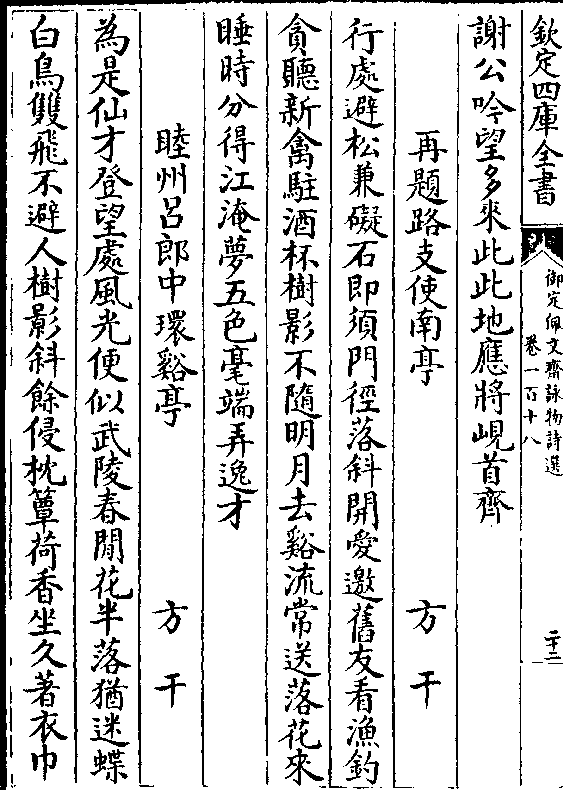 欽定四庫全書
御定佩文齋詠物詩選
卷一百十八
二十二
謝公吟望多來此此地應將峴首齊
再題路支使南亭 方干
行處避松兼礙石即須門徑落斜開愛邀舊友看漁釣
貪聽新禽駐酒杯樹影不隨明月去谿流常送落花來
睡時分得江淹夢五色毫端弄逸才
睦州呂郎中環谿亭 方干
為是仙才登望處風光便似武陵春閒花半落猶迷蝶
白鳥雙飛不避人樹影斜餘侵枕簟荷香坐久著衣巾